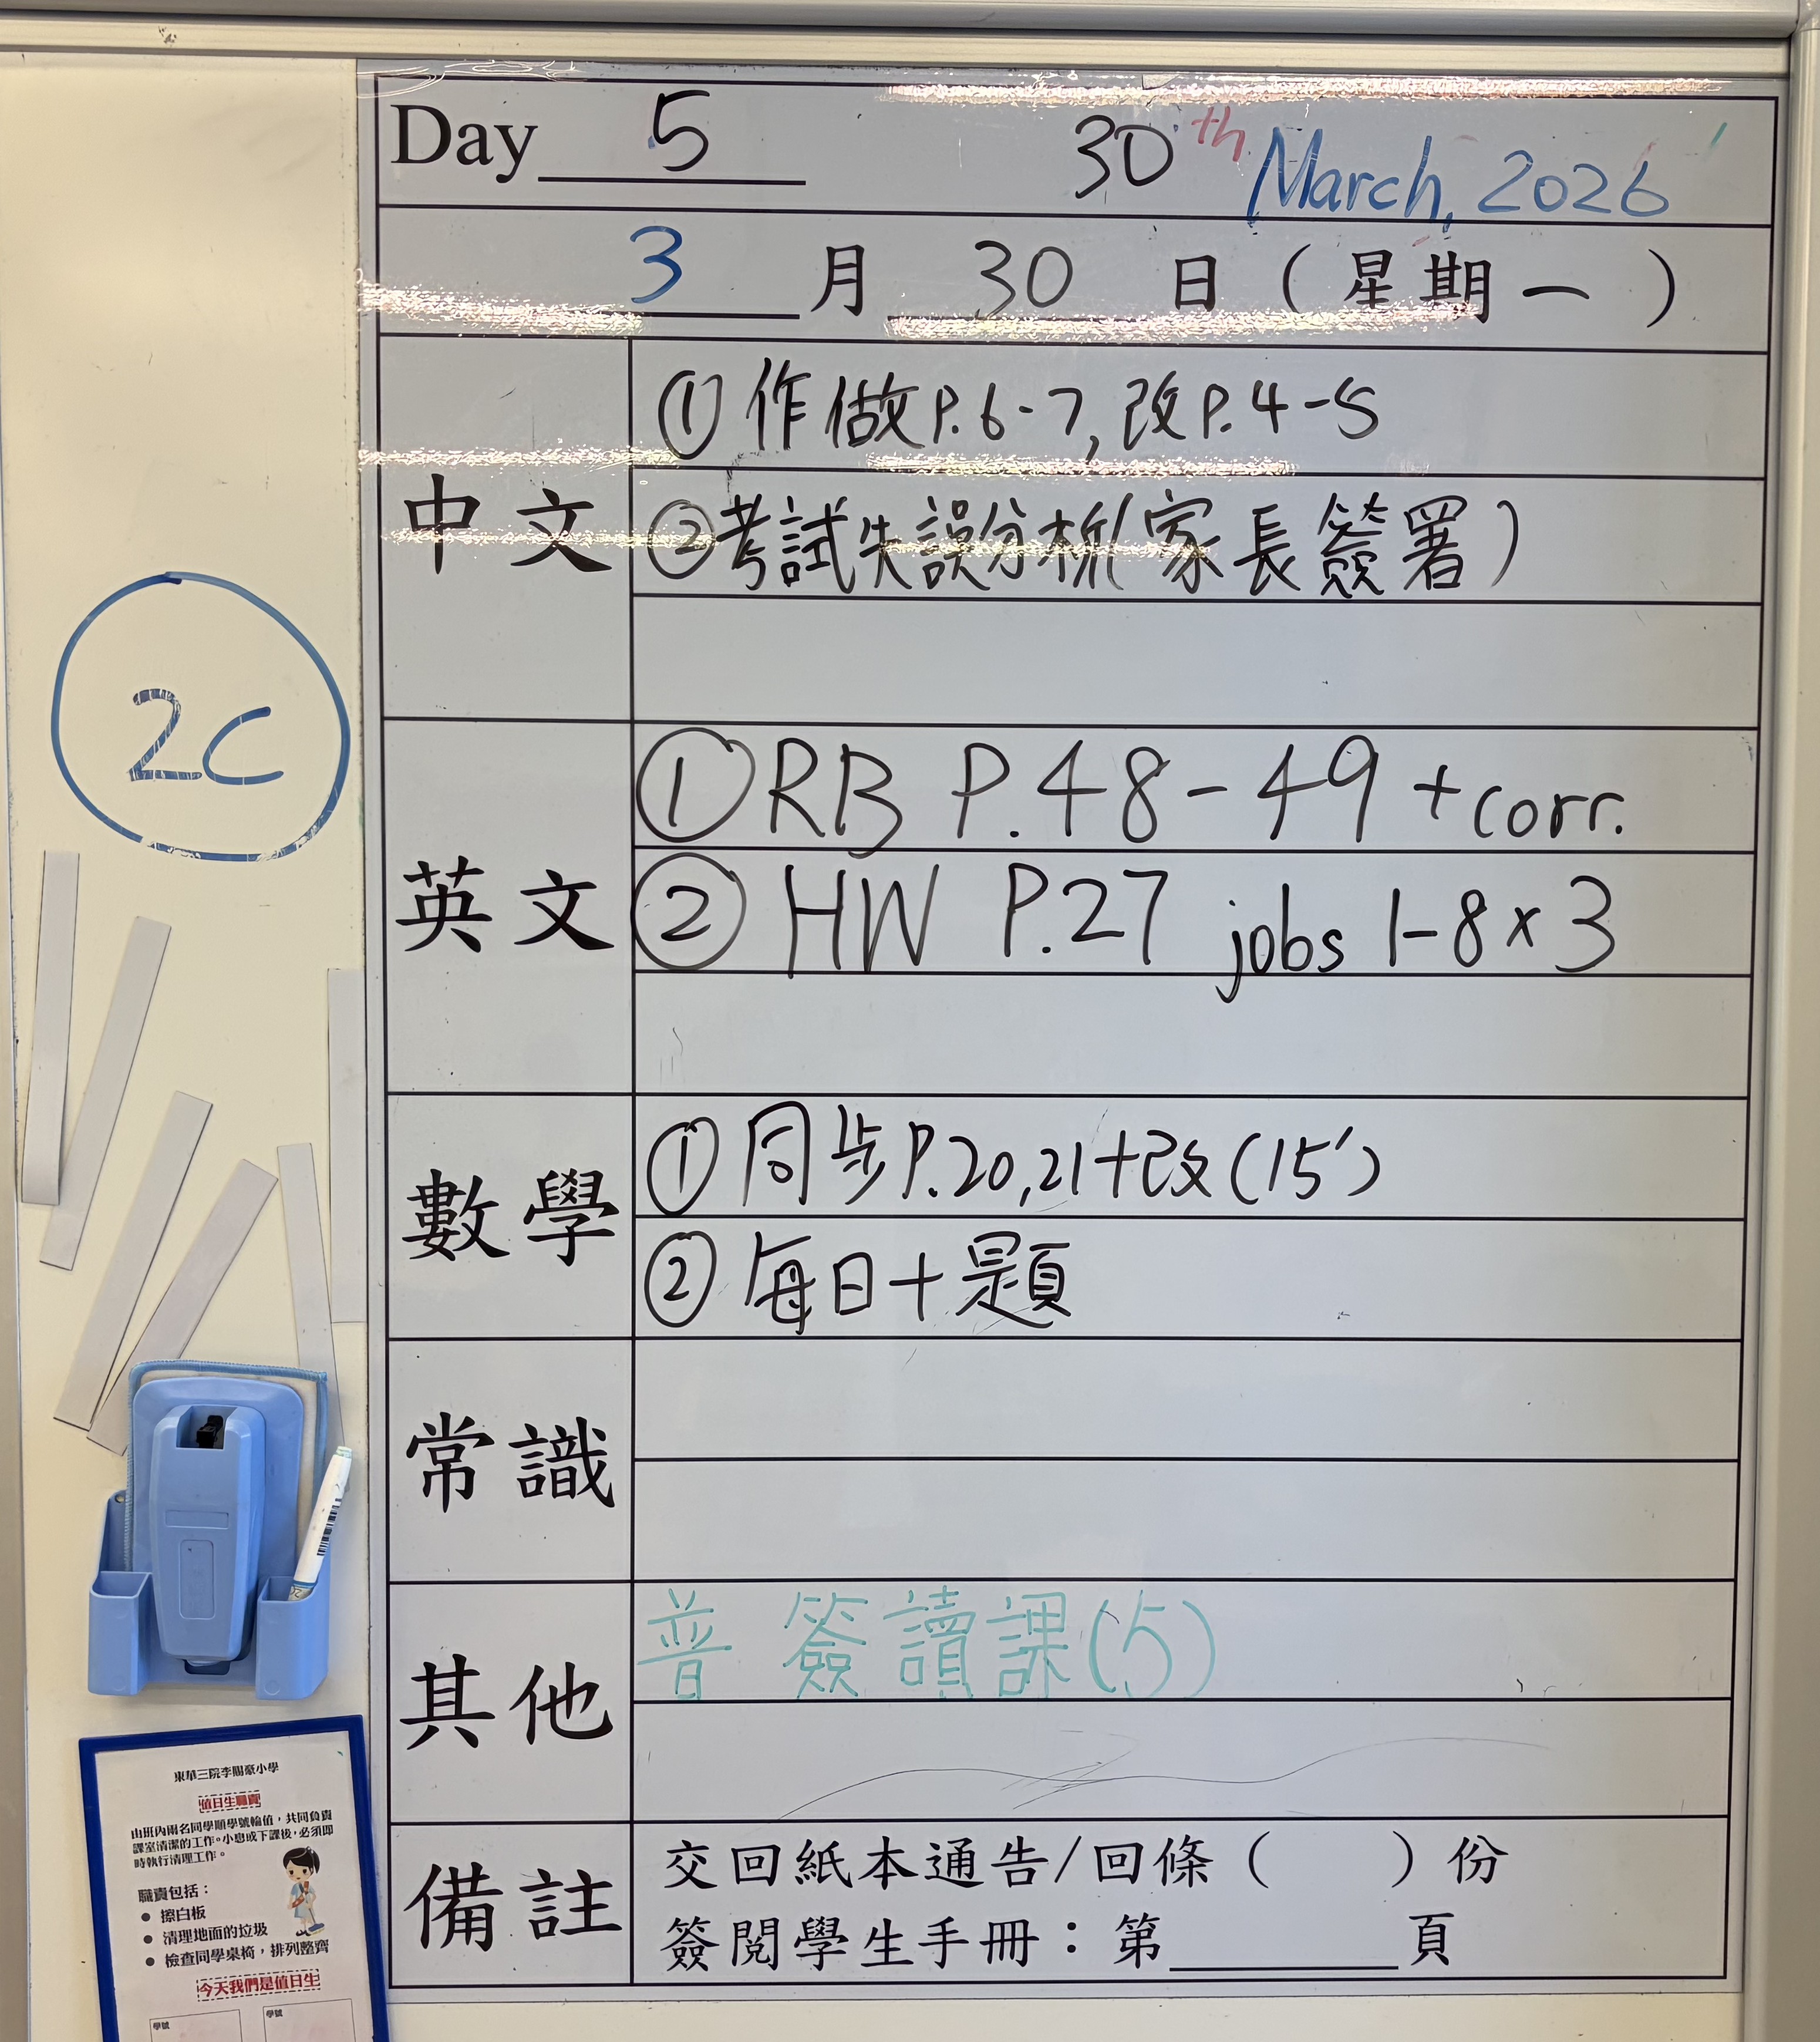 Day 5 30th March, 2026
3月30日(星期一)
中文
①作做P.6-7,改P.4-5
②考試失誤分析(家長簽署)
2C
英文
①RB P.48-49 +corr.
②HW P.27 jobs 1-8×3
數學
①同步P.20,21+改(15')
②每日十題
常識
其他
普 簽讀課(5)
備註
交回紙本通告/回條( )份
簽閱學生手冊:第____頁
東華三院李賜豪小學
值日生職責
由班內兩名同學順學號輪值,共同負責
課室清潔的工作。小息或下課後,必須即
時執行清理工作。
職責包括:
● 擦白板
● 清理地面的垃圾
● 檢查同學桌椅,排列整齊
今天我們是值日生
學號 學號